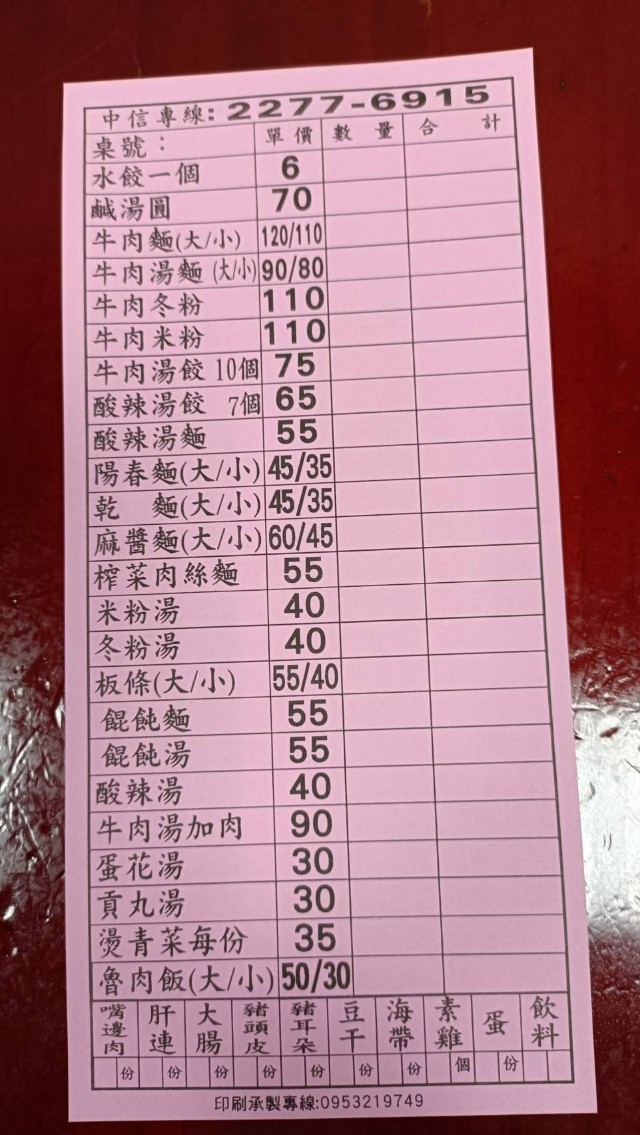 中信專線:2277-6915
桌號： 單價 數量 合計
水餃一個 6
鹹湯圓 70
牛肉麵(大/小) 120/110
牛肉湯麵(大/小) 90/80
牛肉冬粉 110
牛肉米粉 110
牛肉湯餃 10個 75
酸辣湯餃 7個 65
酸辣湯麵 55
陽春麵(大/小) 45/35
乾 麵(大/小) 45/35
麻醬麵(大/小) 60/45
榨菜肉絲麵 55
米粉湯 40
冬粉湯 40
板條(大/小) 55/40
餛飩麵 55
餛飩湯 55
酸辣湯 40
牛肉湯加肉 90
蛋花湯 30
貢丸湯 30
燙青菜每份 35
魯肉飯(大/小) 50/30
嘴邊肉 肝連 大腸 豬頭皮 豬耳朵 豆干 海帶 素雞 蛋 飲料
份 份 份 份 份 份 份 個 份
印刷承製專線:0953219749